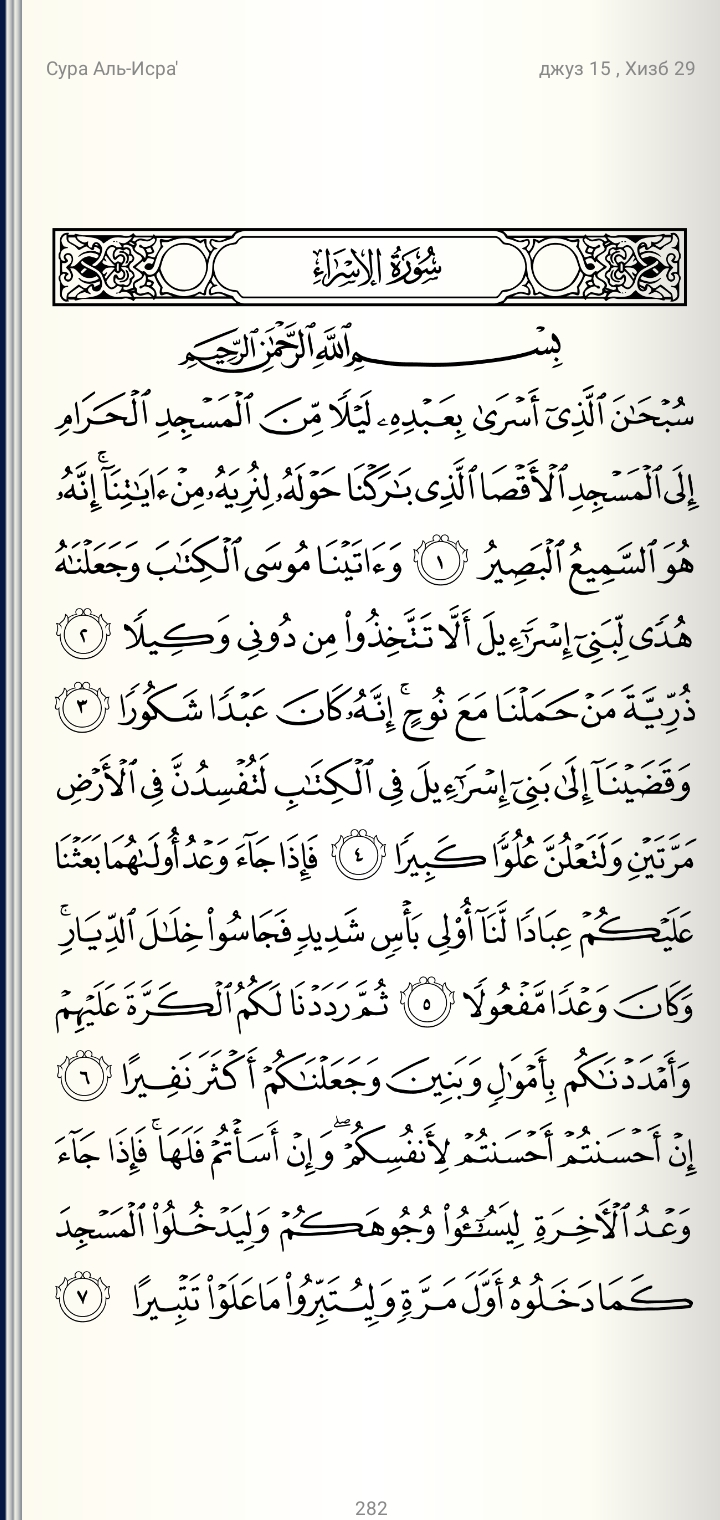 Сура Аль-Исра'
джуз 15 , Хизб 29
سُورَةُ الإِسۡرَاءِ
بِسۡمِ ٱللَّهِ ٱلرَّحۡمَٰنِ ٱلرَّحِيمِ
سُبۡحَٰنَ ٱلَّذِيٓ أَسۡرَىٰ بِعَبۡدِهِۦ لَيۡلٗا مِّنَ ٱلۡمَسۡجِدِ ٱلۡحَرَامِ
إِلَى ٱلۡمَسۡجِدِ ٱلۡأَقۡصَا ٱلَّذِي بَٰرَكۡنَا حَوۡلَهُۥ لِنُرِيَهُۥ مِنۡ ءَايَٰتِنَآۚ إِنَّهُۥ
هُوَ ٱلسَّمِيعُ ٱلۡبَصِيرُ ١ وَءَاتَيۡنَا مُوسَى ٱلۡكِتَٰبَ وَجَعَلۡنَٰهُ
هُدٗى لِّبَنِيٓ إِسۡرَٰٓءِيلَ أَلَّا تَتَّخِذُواْ مِن دُونِي وَكِيلٗا ٢
ذُرِّيَّةَ مَنۡ حَمَلۡنَا مَعَ نُوحٍۚ إِنَّهُۥ كَانَ عَبۡدٗا شَكُورٗا ٣
وَقَضَيۡنَآ إِلَىٰ بَنِيٓ إِسۡرَٰٓءِيلَ فِي ٱلۡكِتَٰبِ لَتُفۡسِدُنَّ فِي ٱلۡأَرۡضِ
مَرَّتَيۡنِ وَلَتَعۡلُنَّ عُلُوّٗا كَبِيرٗا ٤ فَإِذَا جَآءَ وَعۡدُ أُولَىٰهُمَا بَعَثۡنَا
عَلَيۡكُمۡ عِبَادٗا لَّنَآ أُوْلِي بَأۡسٖ شَدِيدٖ فَجَاسُواْ خِلَٰلَ ٱلدِّيَارِۚ
وَكَانَ وَعۡدٗا مَّفۡعُولٗا ٥ ثُمَّ رَدَدۡنَا لَكُمُ ٱلۡكَرَّةَ عَلَيۡهِمۡ
وَأَمۡدَدۡنَٰكُم بِأَمۡوَٰلٖ وَبَنِينَ وَجَعَلۡنَٰكُمۡ أَكۡثَرَ نَفِيرٗا ٦
إِنۡ أَحۡسَنتُمۡ أَحۡسَنتُمۡ لِأَنفُسِكُمۡۖ وَإِنۡ أَسَأۡتُمۡ فَلَهَاۚ فَإِذَا جَآءَ
وَعۡدُ ٱلۡأٓخِرَةِ لِيَسُـُٔواْ وُجُوهَكُمۡ وَلِيَدۡخُلُواْ ٱلۡمَسۡجِدَ
كَمَا دَخَلُوهُ أَوَّلَ مَرَّةٖ وَلِيُتَبِّرُواْ مَا عَلَوۡاْ تَتۡبِيرًا ٧
282